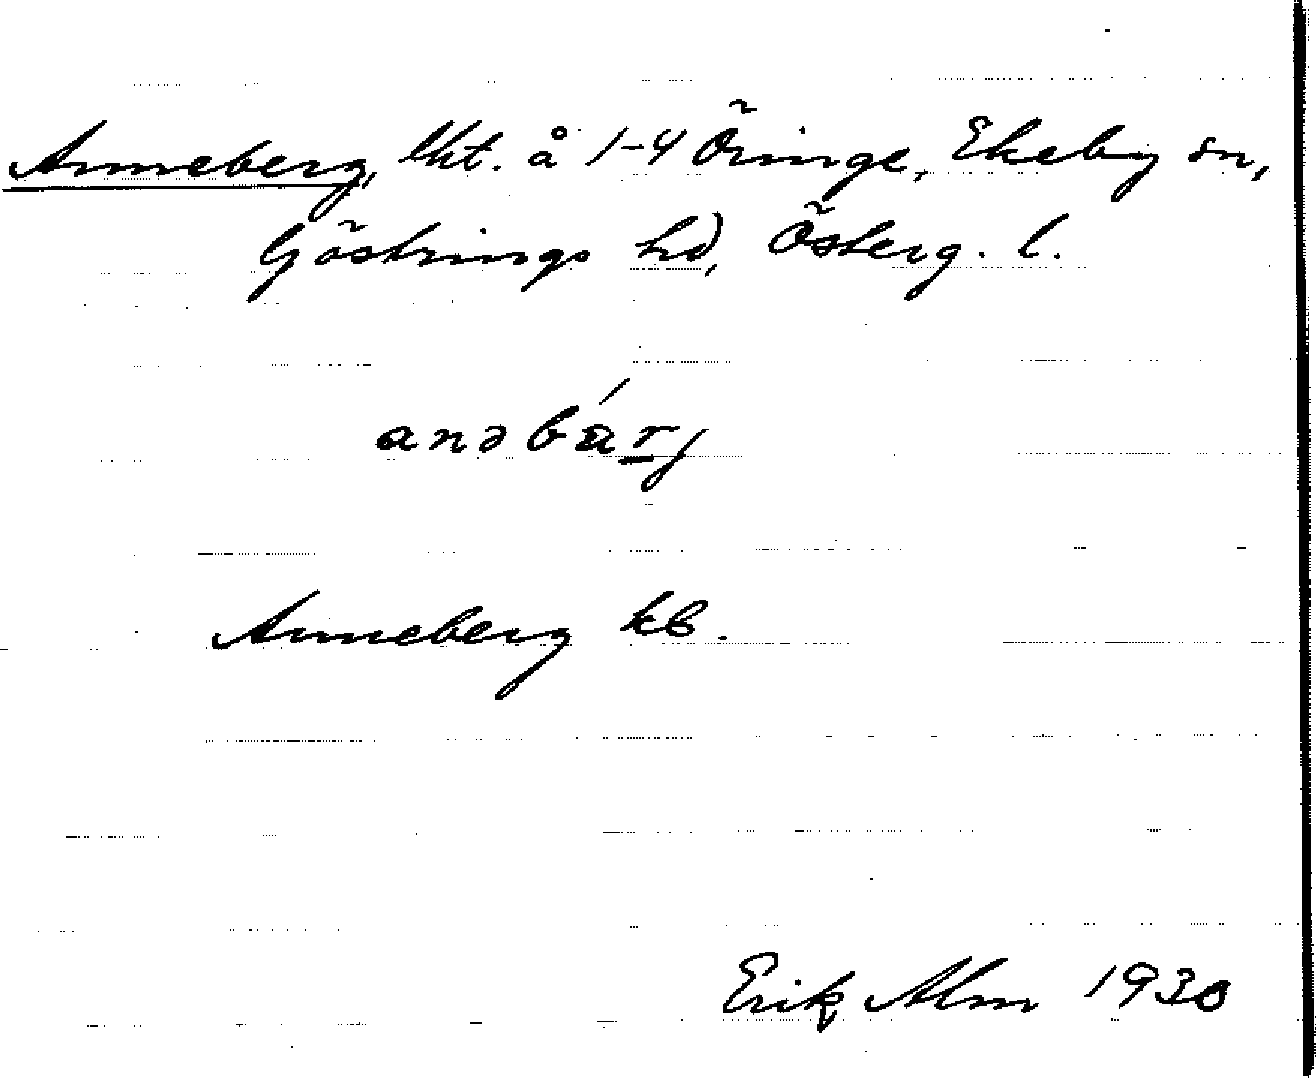 Anneberg, lht. å 1-4 Öringe, Ekeby sn,
Göstrings hd, Österg. l.
anəbárj
Anneberg kb.
Erik Alm 1930